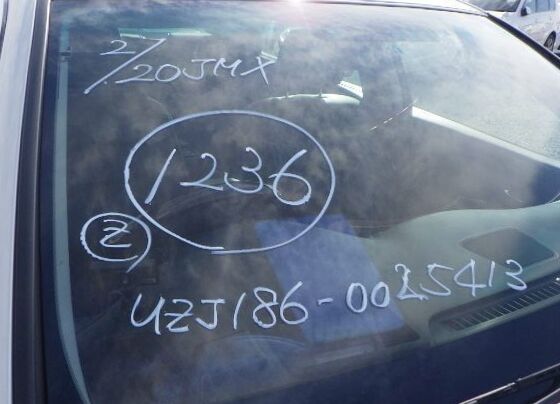 2/20 JMX
1236
Z
UZJ186-0025413